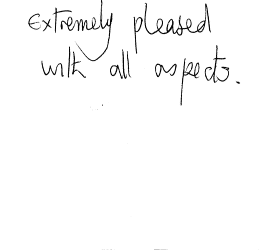 Extremely pleased
with all aspects.